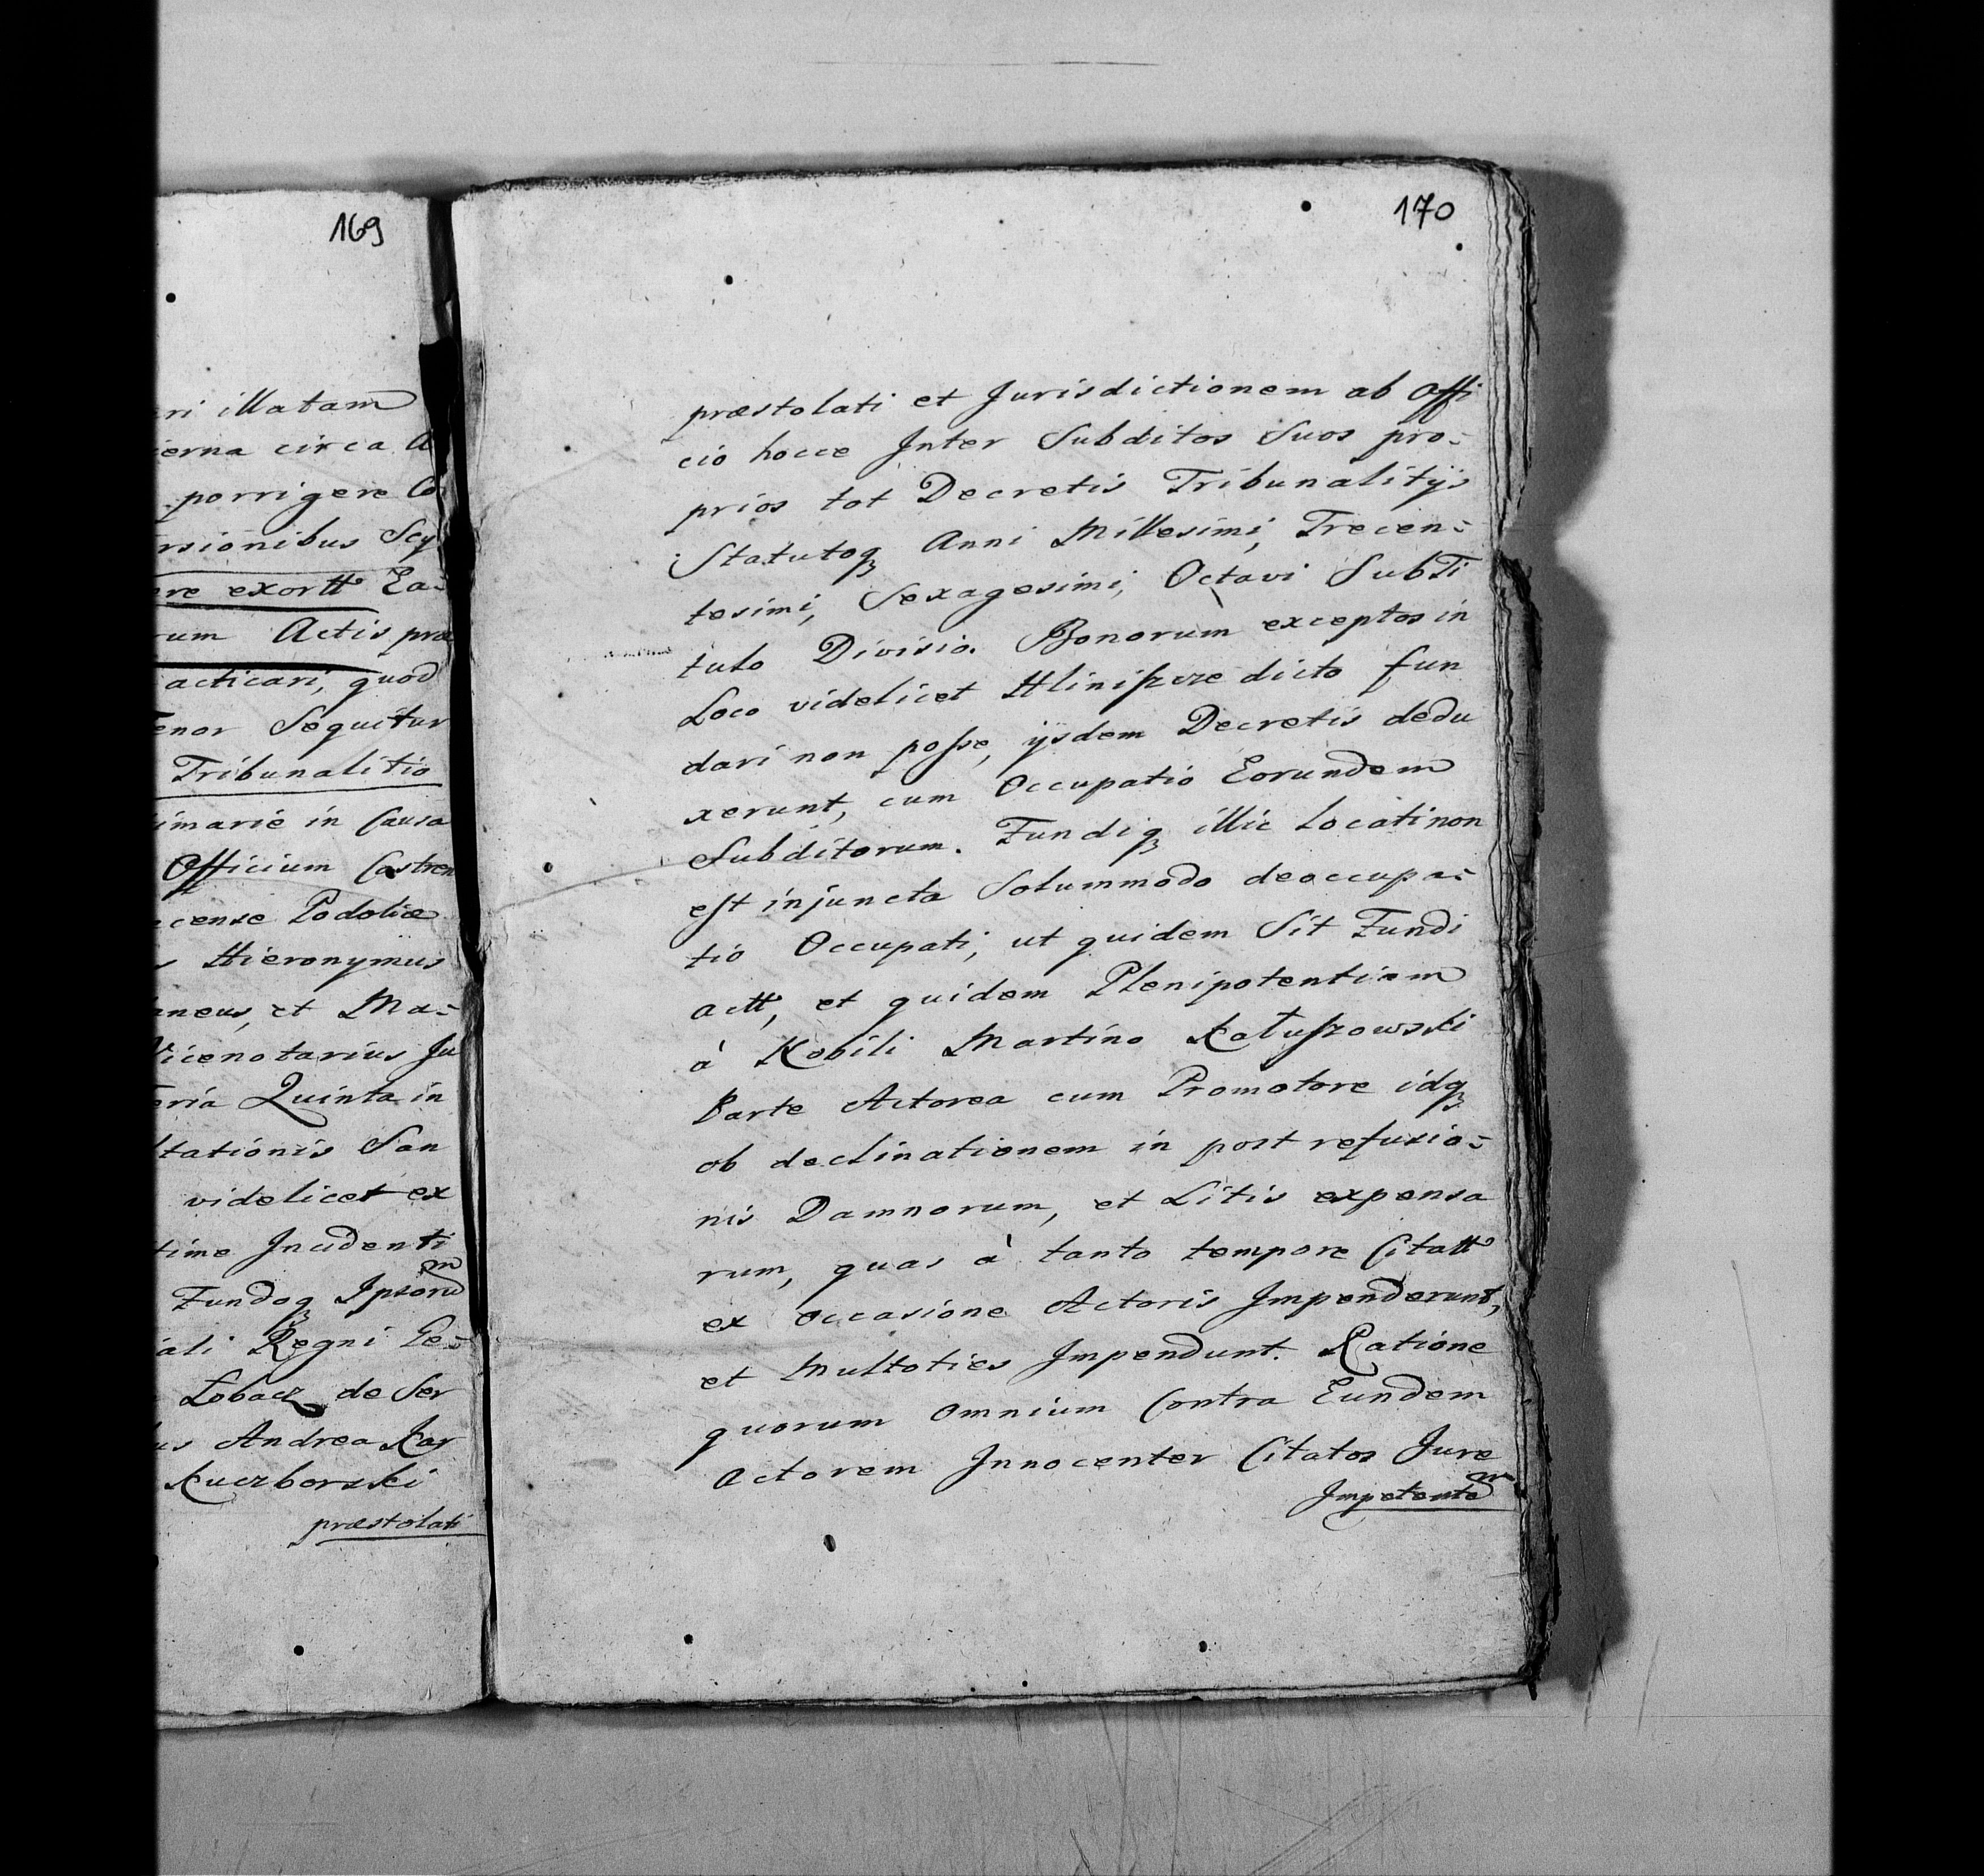 169
ri illatam
erna circa A
porrigere Co
rsionibus Scy
re exortt Ea-
rum Actis præ
acticari, quod
enor Sequitur
Tribunalitio
imarie in Causa
Officium Castren
cense Podoliæ
s Hieronymus
aneus, et Ma-
Vicenotarius Ju
eria Quinta in
tationis San
videlicet ex
time Incidenti
Fundoq Ipsorum
ali Regni Ge-
Lobacz de Ser
us Andrea Kar
Kuczborski
præstolati
170
præstolati et Jurisdictionem ab Offi
cio hocce Inter Subditos Suos pro-
prios tot Decretis Tribunalitijs
Statutoq Anni Millesimi, Trecen-
tesimi, Sexagesimi, Octavi SubTi
tulo Divisio. Bonorum exceptos in
Loco videlicet dicto fun
dari non posse, ijsdem Decretis dedu
xerunt, cum Occupatio Eorundem
Subditorum. Fundiq illic Locati non
est injuncta Solummodo deoccupa-
tio Occupati, ut quidem Sit Fundi
actt, et quidem Plenipotentiam
à Nobili Martino Kałuszowski
Parte Actorea cum Promotore idq
ob declinationem in post refusio-
nis Damnorum, et Litis expensa
rum, quas à tanto tempore Citatt
ex occasione Actoris Impenderunt,
et Multoties Impendunt. Ratione
quorum omnium Contra Eundem
Actorem Innocenter Citatos Jure
Impetentem